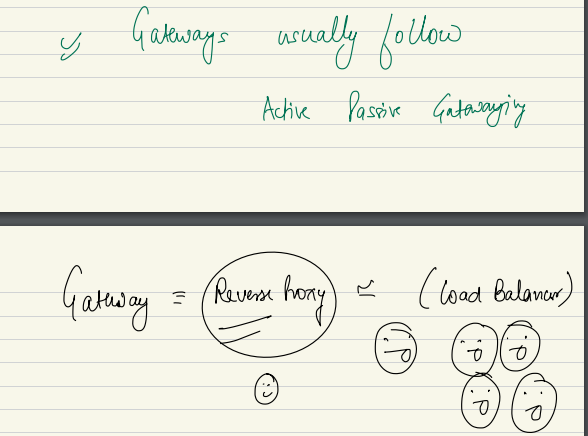 Gateways usually follow
Active Passive Gatewaying
Gateway = Reverse Proxy ≃ (Load Balancer)